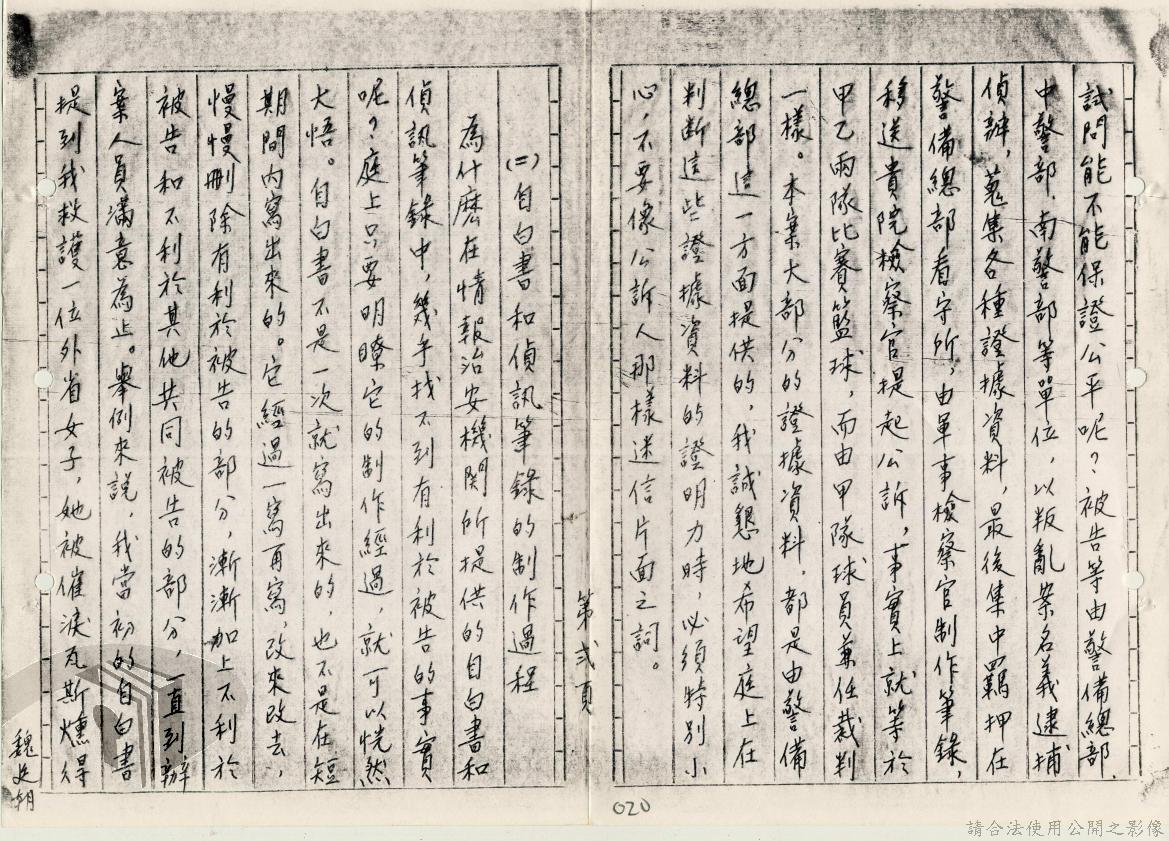 試問能不能保證公平呢？被告等由警備總部、
中警部、南警部等單位，以叛亂案名義逮捕
偵辦，蒐集各種證據資料，最後集中羈押在
警備總部看守所，由軍事檢察官制作筆錄，
移送貴院檢察官提起公訴，事實上就等於
甲乙兩隊比賽籃球，而由甲隊球員兼任裁判
一樣。本案大部分的證據資料，都是由警備
總部這一方面提供的，我誠懇地希望庭上在
判斷這些證據資料的證明力時，必須特別小
心，不要像公訴人那樣迷信片面之詞。
第弍頁
(二)自白書和偵訊筆錄的制作過程
為什麽在情報治安機関所提供的自白書和
偵訊筆錄中，幾乎找不到有利於被告的事實
呢？庭上只要明瞭它的制作經過，就可以恍然
大悟。自白書不是一次就寫出來的，也不是在短
期間內寫出來的。它經過一寫再寫，改來改去，
慢慢刪除有利於被告的部分，漸漸加上不利於
被告和不利於其他共同被告的部分，一直到辦
案人員滿意為止。舉例來說，我當初的自白書
提到我救護一位外省女子，她被催淚瓦斯燻得
魏廷朝
020
請合法使用公開之影像